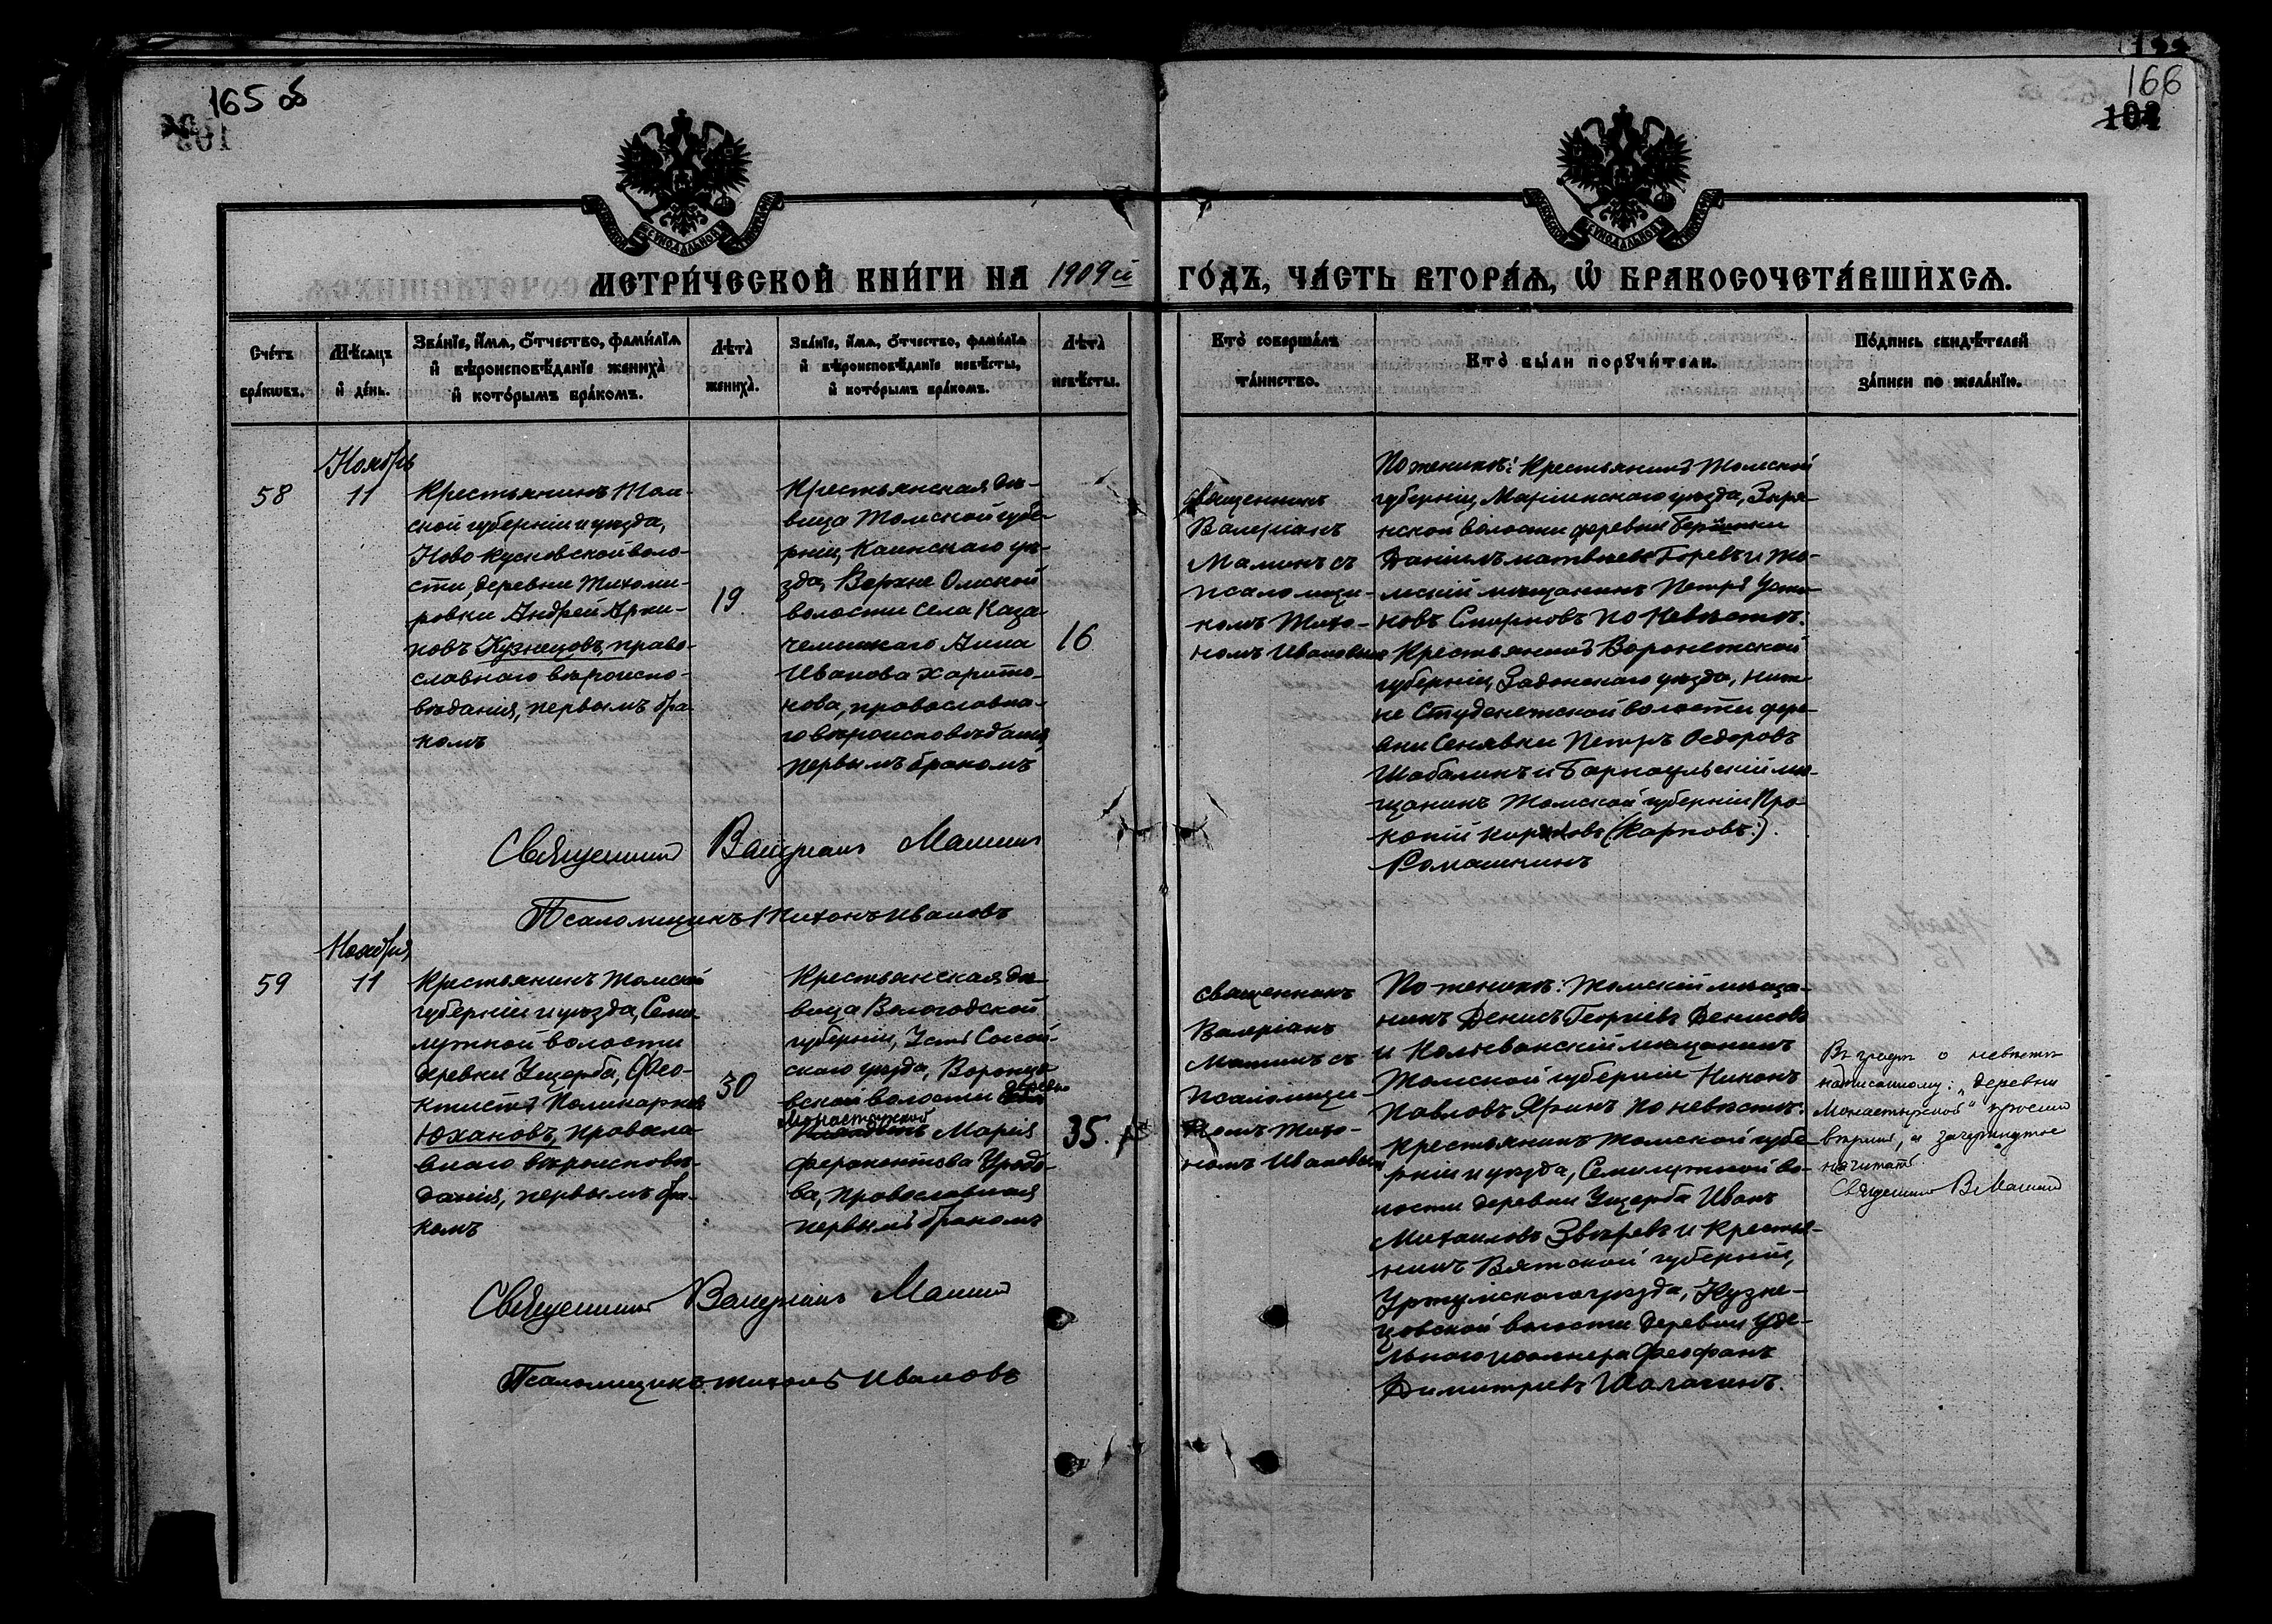 165 об
166
МЕТРИ́ЧЕСКОЙ КНИ́ГИ НА 1909й ГО́ДЪ, ЧА́СТЬ ВТОРА́Ѧ, Ѡ҆ БРАКОСОЧЕТА́ВШИХСѦ.
Сче́тъ бра́кѡвъ.
Мѣ́сѧцъ и҆ де́нь.
Зва́нїе, и҆́мѧ, ѻ҆́тчество, фами́лїѧ
и҆ вѣроисповѣ́данїе жениха̀
и҆ кото́рымъ бра́комъ.
Лѣта̀ жениха̀.
Зва́нїе, и҆́мѧ, ѻ҆́тчество, фами́лїѧ
и҆ вѣроисповѣ́данїе невѣ́сты,
и҆ кото́рымъ бра́комъ.
Лѣта̀ невѣ́сты.
Кто̀ соверша́лъ
та́инство.
Кто̀ бы́ли порꙋчи́тели.
По́дпись свидѣ́телей
за́писи по жела́нїю.
58
Ноябрь
11
Крестьянинъ Том-
ской губерніи и уѣзда,
Ново Кусковской воло-
сти, деревни Тихоми-
ровки Андрей Архи-
повъ Кузнецовъ, право-
славнаго вѣроиспо-
вѣданія, первымъ бра-
комъ
19
Крестьянская дѣ-
вица Томской губе-
рніи, Каинскаго уѣ-
зда, Верхне Омской
волости села Каза
чемысскаго Анна
Иванова Харито-
нова, православна-
го вѣроисповѣданія,
первымъ бракомъ
16
Священникъ
Валеріанъ
Маминъ съ
псаломщи-
комъ Тихо-
номъ Ивановымъ
По женихѣ: Крестьянинъ Томской
губерніи, Маріинскаго уѣзда, Зыря-
нской волости деревни
Даніилъ Матвѣевъ Горевъ и То-
мскій мѣщанинъ Петръ Усти-
новъ Смирновъ по Невѣстѣ:
Крестьянинъ Воронежской
губерніи, Задонскаго уѣзда, Ниж-
не Студенежской волости дере-
вни Сенявки Петръ Ѳедоровъ
Шабалинъ и Барнаульскій мѣ-
щанинъ Томской губерніи Про-
копій (Карповъ:)
Ромашкинъ
Священникъ Валеріанъ Маминъ
Псаломщикъ Тихонъ Ивановъ
59
Ноября
11
Крестьянинъ Томской
губерніи и уѣзда, Семи-
лужной волости
деревни Ущерба, Фео-
ктистъ Поликарповъ
Юхановъ, правосла-
внаго вѣроисповѣ-
данія, первымъ бра-
комъ
30
Крестьянская дѣ-
вица Вологодской
губерніи, Устъ Сысоль-
скаго уѣзда, Воронцо-
вской волости деревни
Монастырской
Марія
Ферапонтова Уродо-
ва, православная
первымъ бракомъ
35
Священникъ
Валеріанъ
Маминъ съ
псаломщи-
комъ Тихо-
номъ Ивановымъ
По женихѣ: Томскій мѣща-
нинъ Денисъ Георгіевъ Денисовъ
и Колыванскій мѣщанинъ
Томской губерніи Никонъ
Павловъ Яринъ по невѣстѣ:
Крестьянинъ Томской губе-
рніи и уѣзда, Семилужной во-
лости деревни Ущерба Иванъ
Михаиловъ Звѣревъ и Крестья-
нинъ Вятской губерніи,
Уржумскаго уѣзда, Кузне-
цовской волости деревни Уде-
льнаго Феофанъ
Димитріевъ Шалагинъ.
Въ графѣ о невѣстѣ
написанному: „деревни
Монастырской" просимъ
вѣрить, а зачеркнутое
не читать.
Священникъ В Маминъ
Священникъ Валеріанъ Маминъ
Псаломщикъ Тихонъ Ивановъ